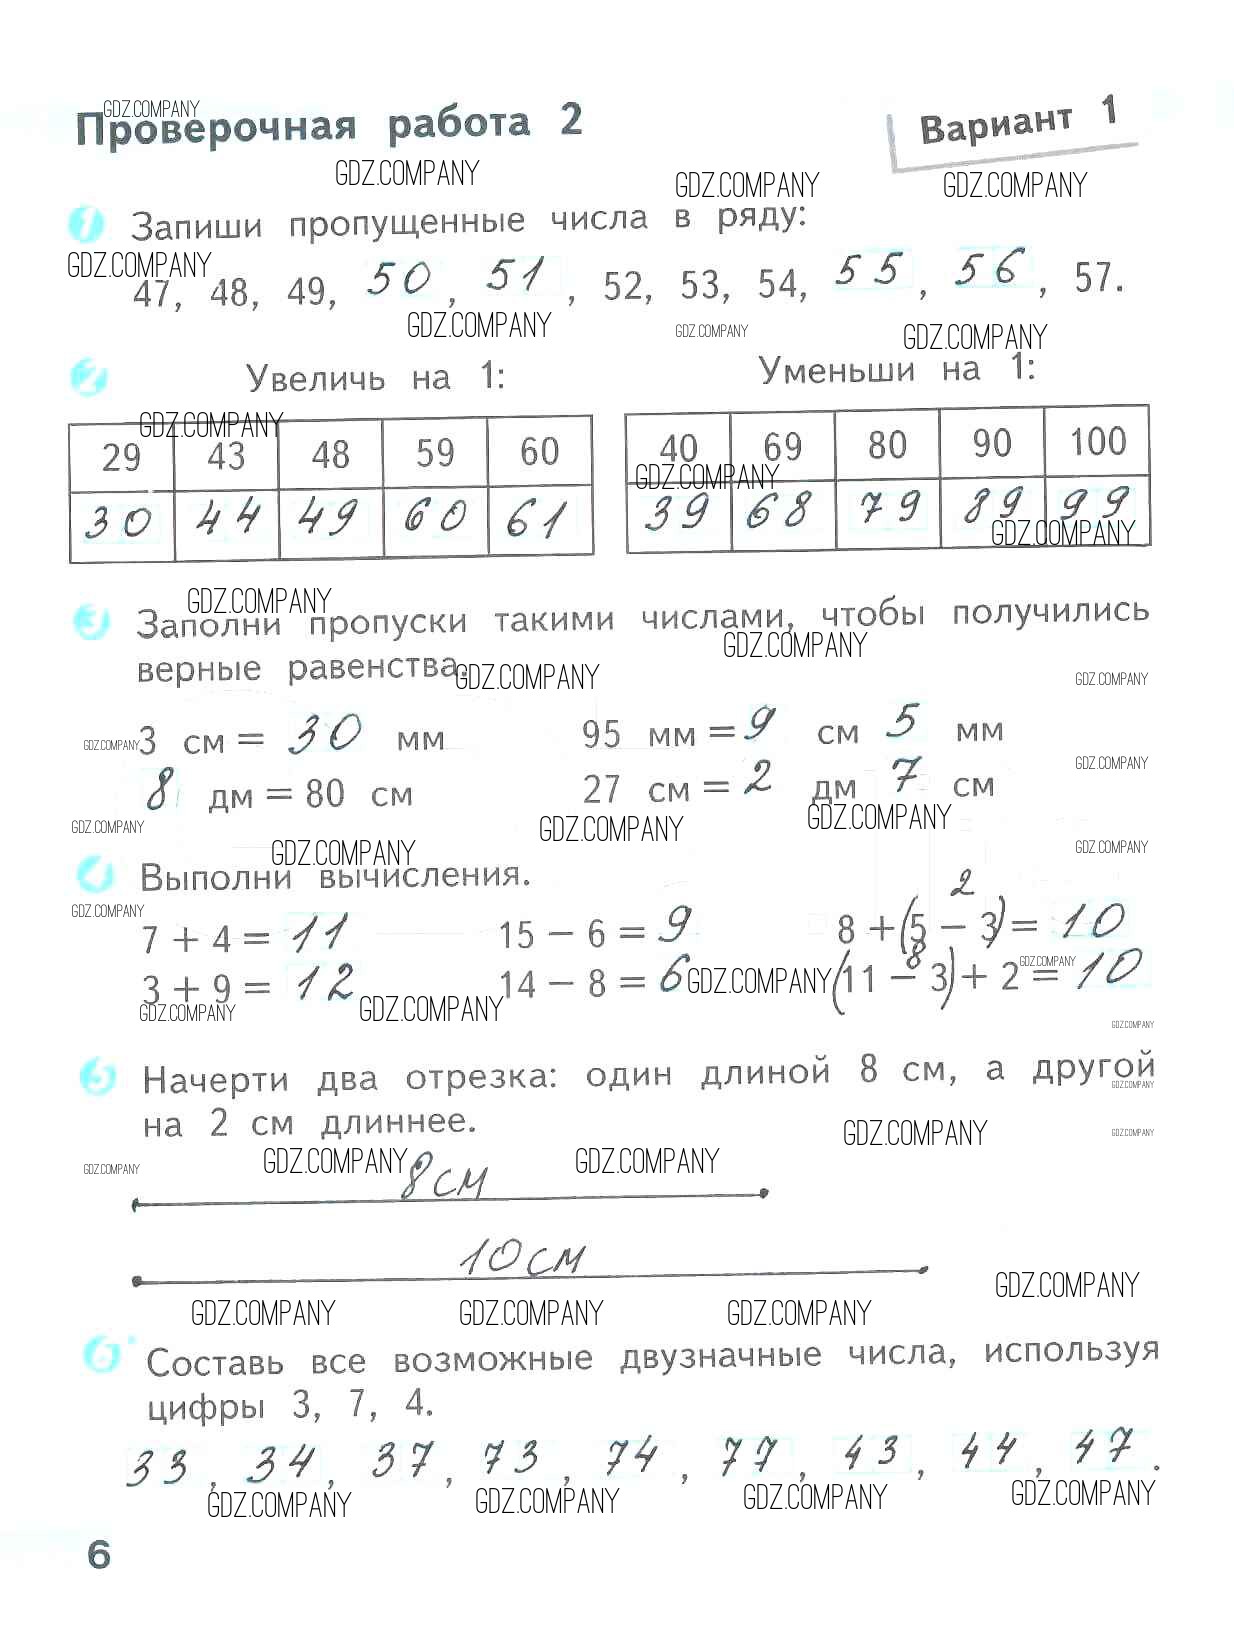 GDZ.COMPANY
Проверочная работа 2
Вариант 1
GDZ.COMPANY
GDZ.COMPANY GDZ.COMPANY
1 Запиши пропущенные числа в ряду:
GDZ.COMPANY
47, 48, 49, 50, 51, 52, 53, 54, 55, 56, 57.
GDZ.COMPANY GDZ.COMPANY GDZ.COMPANY
2 Увеличь на 1: Уменьши на 1:
GDZ.COMPANY
29 43 48 59 60 40 69 80 90 100
GDZ.COMPANY
30 44 49 60 61 39 68 79 89 99
GDZ.COMPANY
GDZ.COMPANY
3 Заполни пропуски такими числами, чтобы получились
GDZ.COMPANY
верные равенства.
GDZ.COMPANY GDZ.COMPANY
3 см = 30 мм 95 мм = 9 см 5 мм
GDZ.COMPANY GDZ.COMPANY
8 дм = 80 см 27 см = 2 дм 7 см
GDZ.COMPANY GDZ.COMPANY GDZ.COMPANY
GDZ.COMPANY GDZ.COMPANY
4 Выполни вычисления.
2
GDZ.COMPANY
7 + 4 = 11 15 − 6 = 9 8 + (5 − 3) = 10
8 GDZ.COMPANY
3 + 9 = 12 14 − 8 = 6 GDZ.COMPANY (11 − 3) + 2 = 10
GDZ.COMPANY GDZ.COMPANY GDZ.COMPANY
5 Начерти два отрезка: один длиной 8 см, а другой
GDZ.COMPANY
на 2 см длиннее.
GDZ.COMPANY GDZ.COMPANY
GDZ.COMPANY GDZ.COMPANY GDZ.COMPANY
8 см
10 см
GDZ.COMPANY
GDZ.COMPANY GDZ.COMPANY GDZ.COMPANY
6* Составь все возможные двузначные числа, используя
цифры 3, 7, 4.
33, 34, 37, 73, 74, 77, 43, 44, 47.
GDZ.COMPANY GDZ.COMPANY GDZ.COMPANY GDZ.COMPANY
6